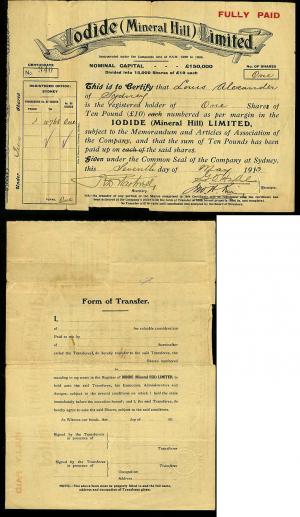 FULLY PAID
Iodide (Mineral Hill) Limited.
Incorporated under the Companies Acts of N.S.W.
CERTIFICATE
No. 340
NOMINAL CAPITAL - - - £150,000
Divided into 15,000 Shares of £10 each
No. OF SHARES
One
REGISTERED OFFICE:
SYDNEY
This is to Certify that Louis Alexander
of Sydney
is the registered holder of One Shares of
Ten Pound (£10) each numbered as per margin in the
IODIDE (Mineral Hill) LIMITED,
subject to the Memorandum and Articles of Association of
the Company, and that the sum of Ten Pounds has been
paid up on each of the said shares.
Given under the Common Seal of the Company at Sydney,
this Seventh day of May 191
Form of Transfer.
I,
of for valuable consideration
Paid to me by
of hereinafter
called the Transferee, do hereby transfer to the said Transferee, the
Shares numbered
to
standing in my name in the Register of IODIDE (Mineral Hill) LIMITED, to
hold unto the said Transferee, his Executors, Administrators and
Assigns, subject to the several conditions on which I held the same
immediately before the execution hereof; and I, the said Transferee, do
hereby agree to take the said Shares, subject to the said conditions.
As Witness our hands, this day of 191
Signed by the Transferror
in presence of
Transferror
Signed by the Transferee
in presence of
Transferee
Occupation
Address
NOTE.—The above must be properly filled in and the full name,
address and occupation of Transferee given.